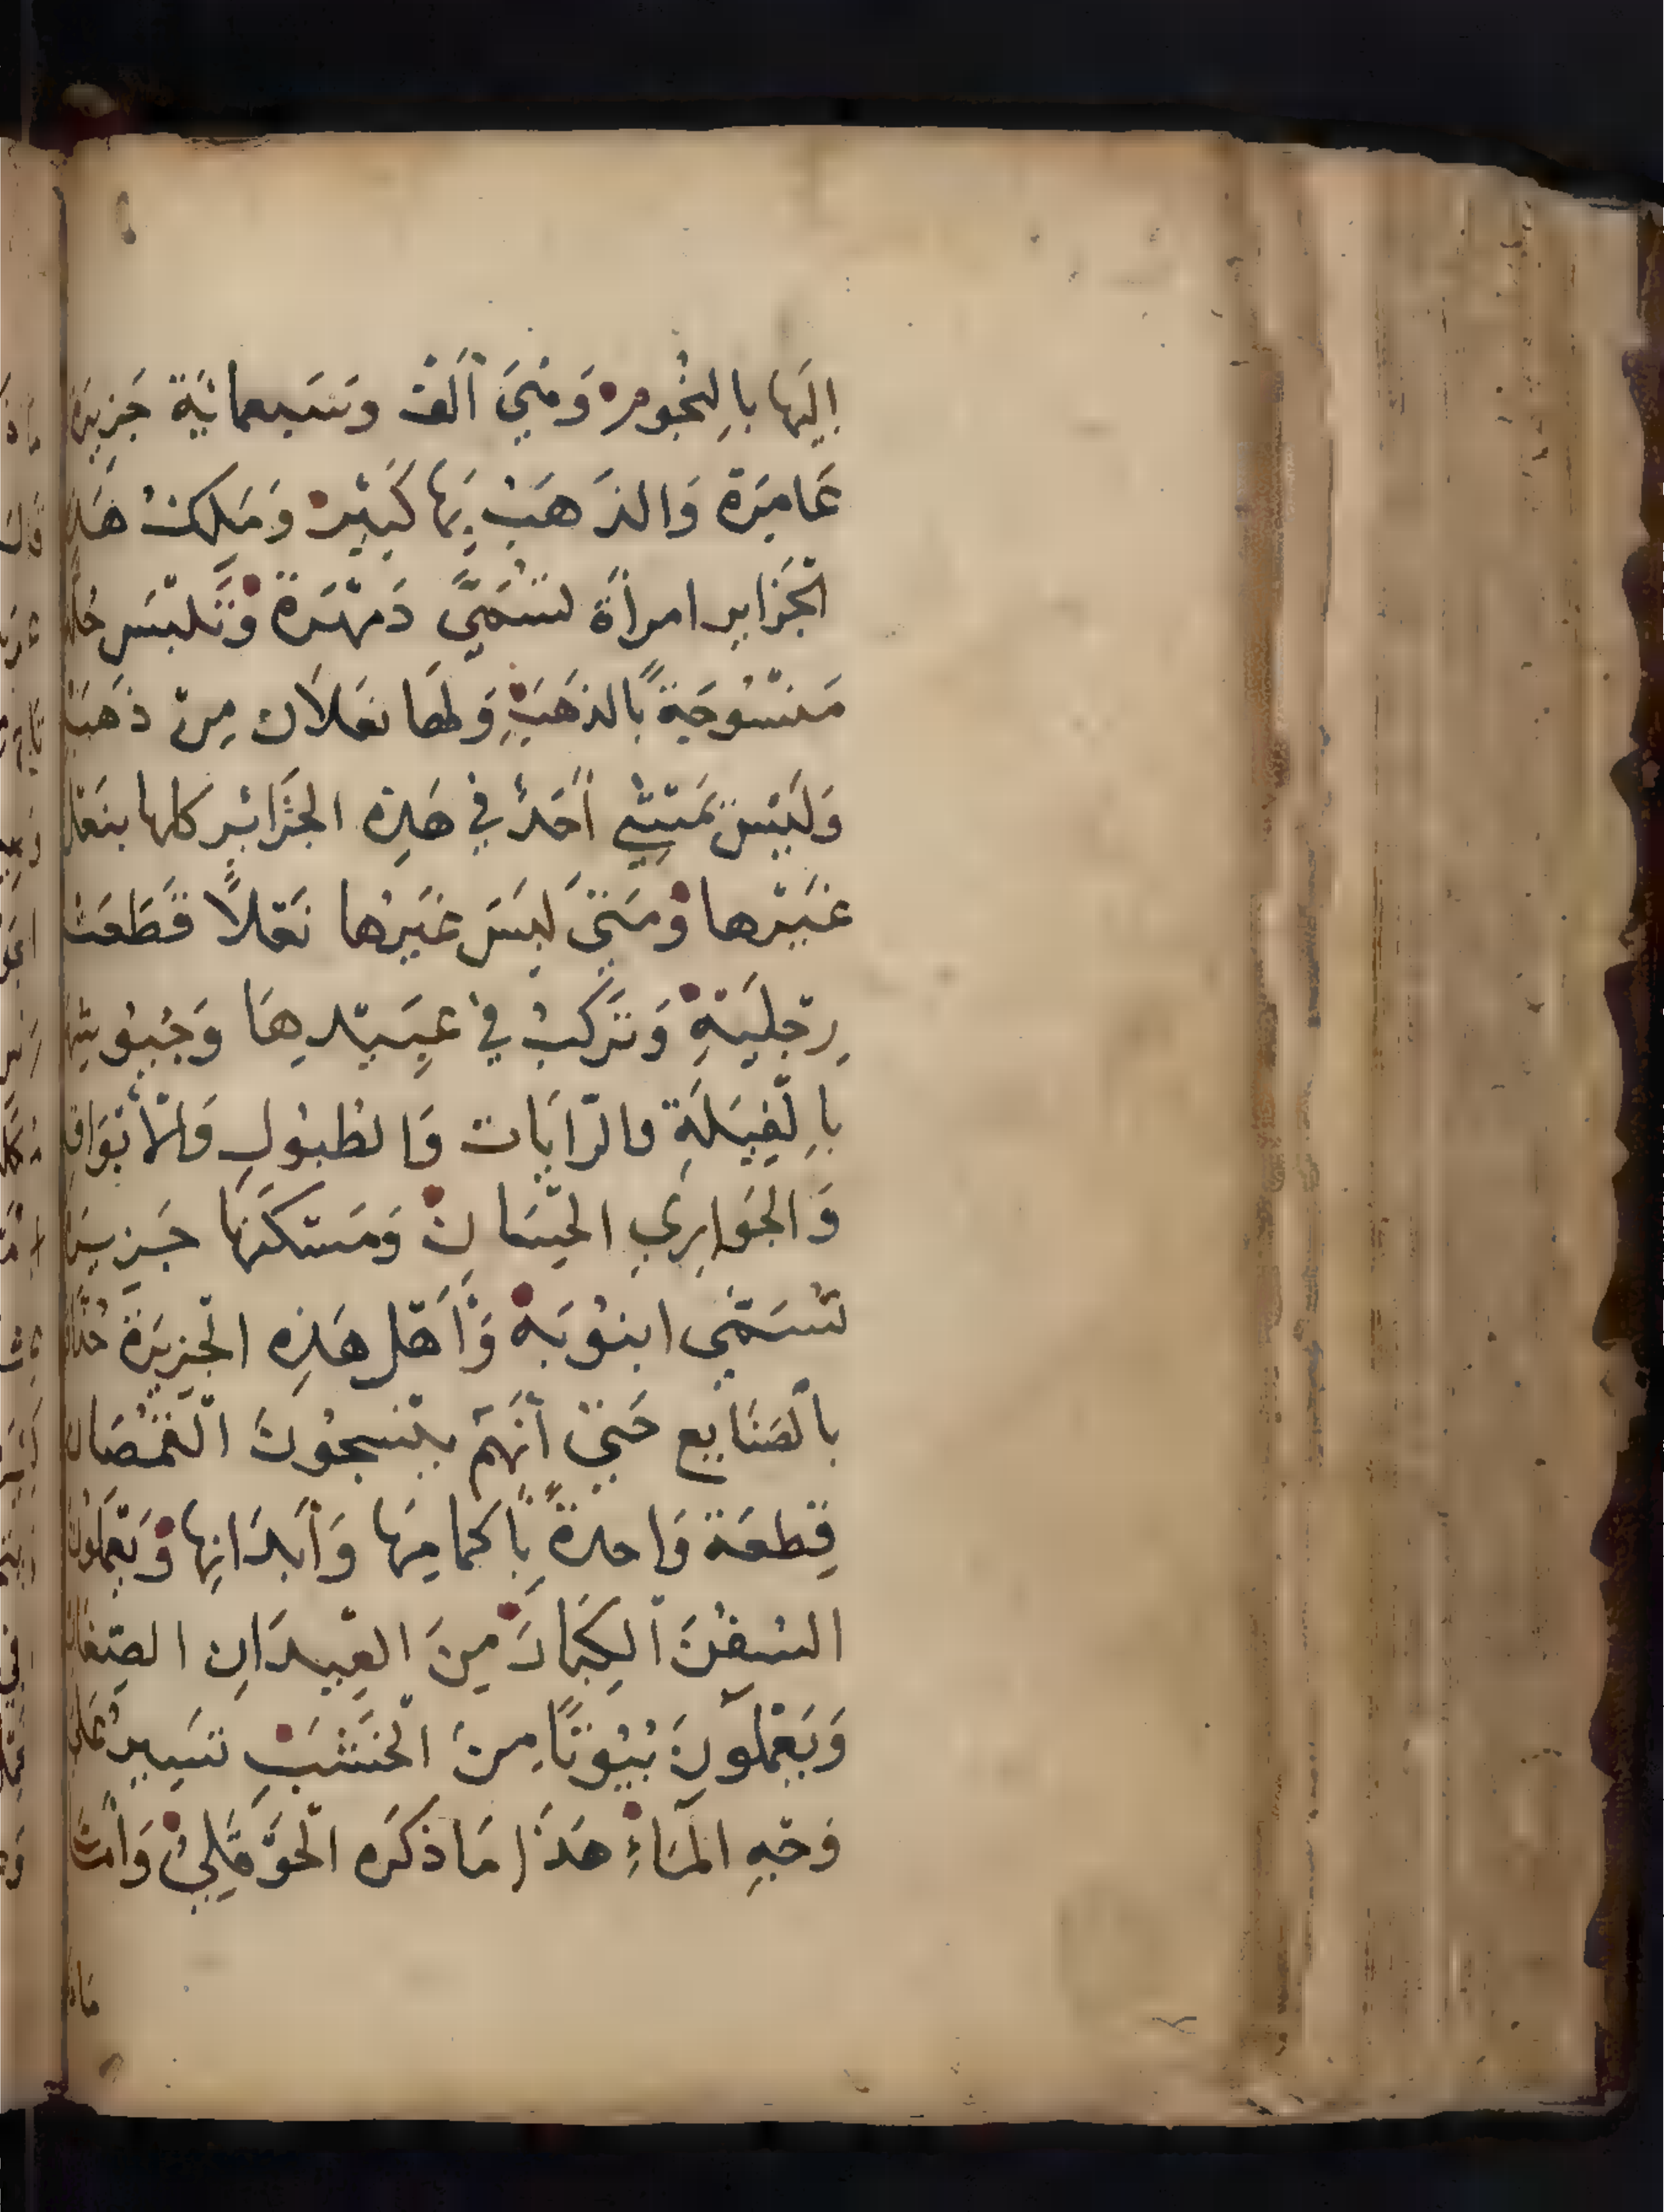 اِلَيها بالِنجُومِ وَهيَ اَلفْ وسَبعمائَة جَزيرَة
عَامِرَة وَالذَهَبْ بِهَا كَثيْر وَمَلِكتْ هَذِهِ
الجْزَاير امراَة تسَمُّيَ دَمهْرَة وَتَلبْسَ حُلَة
مَنسْوُجَةً بالذَهَبْ وَلها نعَلاَن مِنْ ذَهَبْ
وَلَيْسَ يَمشْيِ اَحَدُ في هَذِه الجْزَائرِ كلها بنَعْل
غَيْرها وَمَتىَ لَبِسَ غَيرُها نَعْلاً قطَعَتْ
رِجْليَهِ وَتَركَبُ في عَبِيدِهَا وَجُيوُشِهَا
باِلفِيَلَةِ والرّاَيَات وَالطُبُولِ وَالاَبْوَاقِ
وَالجَوارِيِ الحِسَانْ وَمَسْكَنَهَا جَزيرَة
تُسَمّىَ ابنوُبَه وَاَهْل هَذِه الجْزِيرَة حُذَّاق
بالصَنَايع حَتىَّ اَنَهَّمْ ينسجُونَ الْقمُصَان
قِطعَة وَاحدةً بِاكمامِهَا وَاَبدَانِها وَيَعْمَلوُنَ
السُفُنَ الكِبَارَ مِنَ العِيدَانِ الصِغَار
وَيَعْمَلوُنَ بُيُوتًا مِنَ الْخَشَبِ تسَيِرُ عَلىَ
وَجْهِ المْاَءِ هَذَا مَا ذكَرَه الْحَوْقَلِيْ وَاَمَّا
مَا